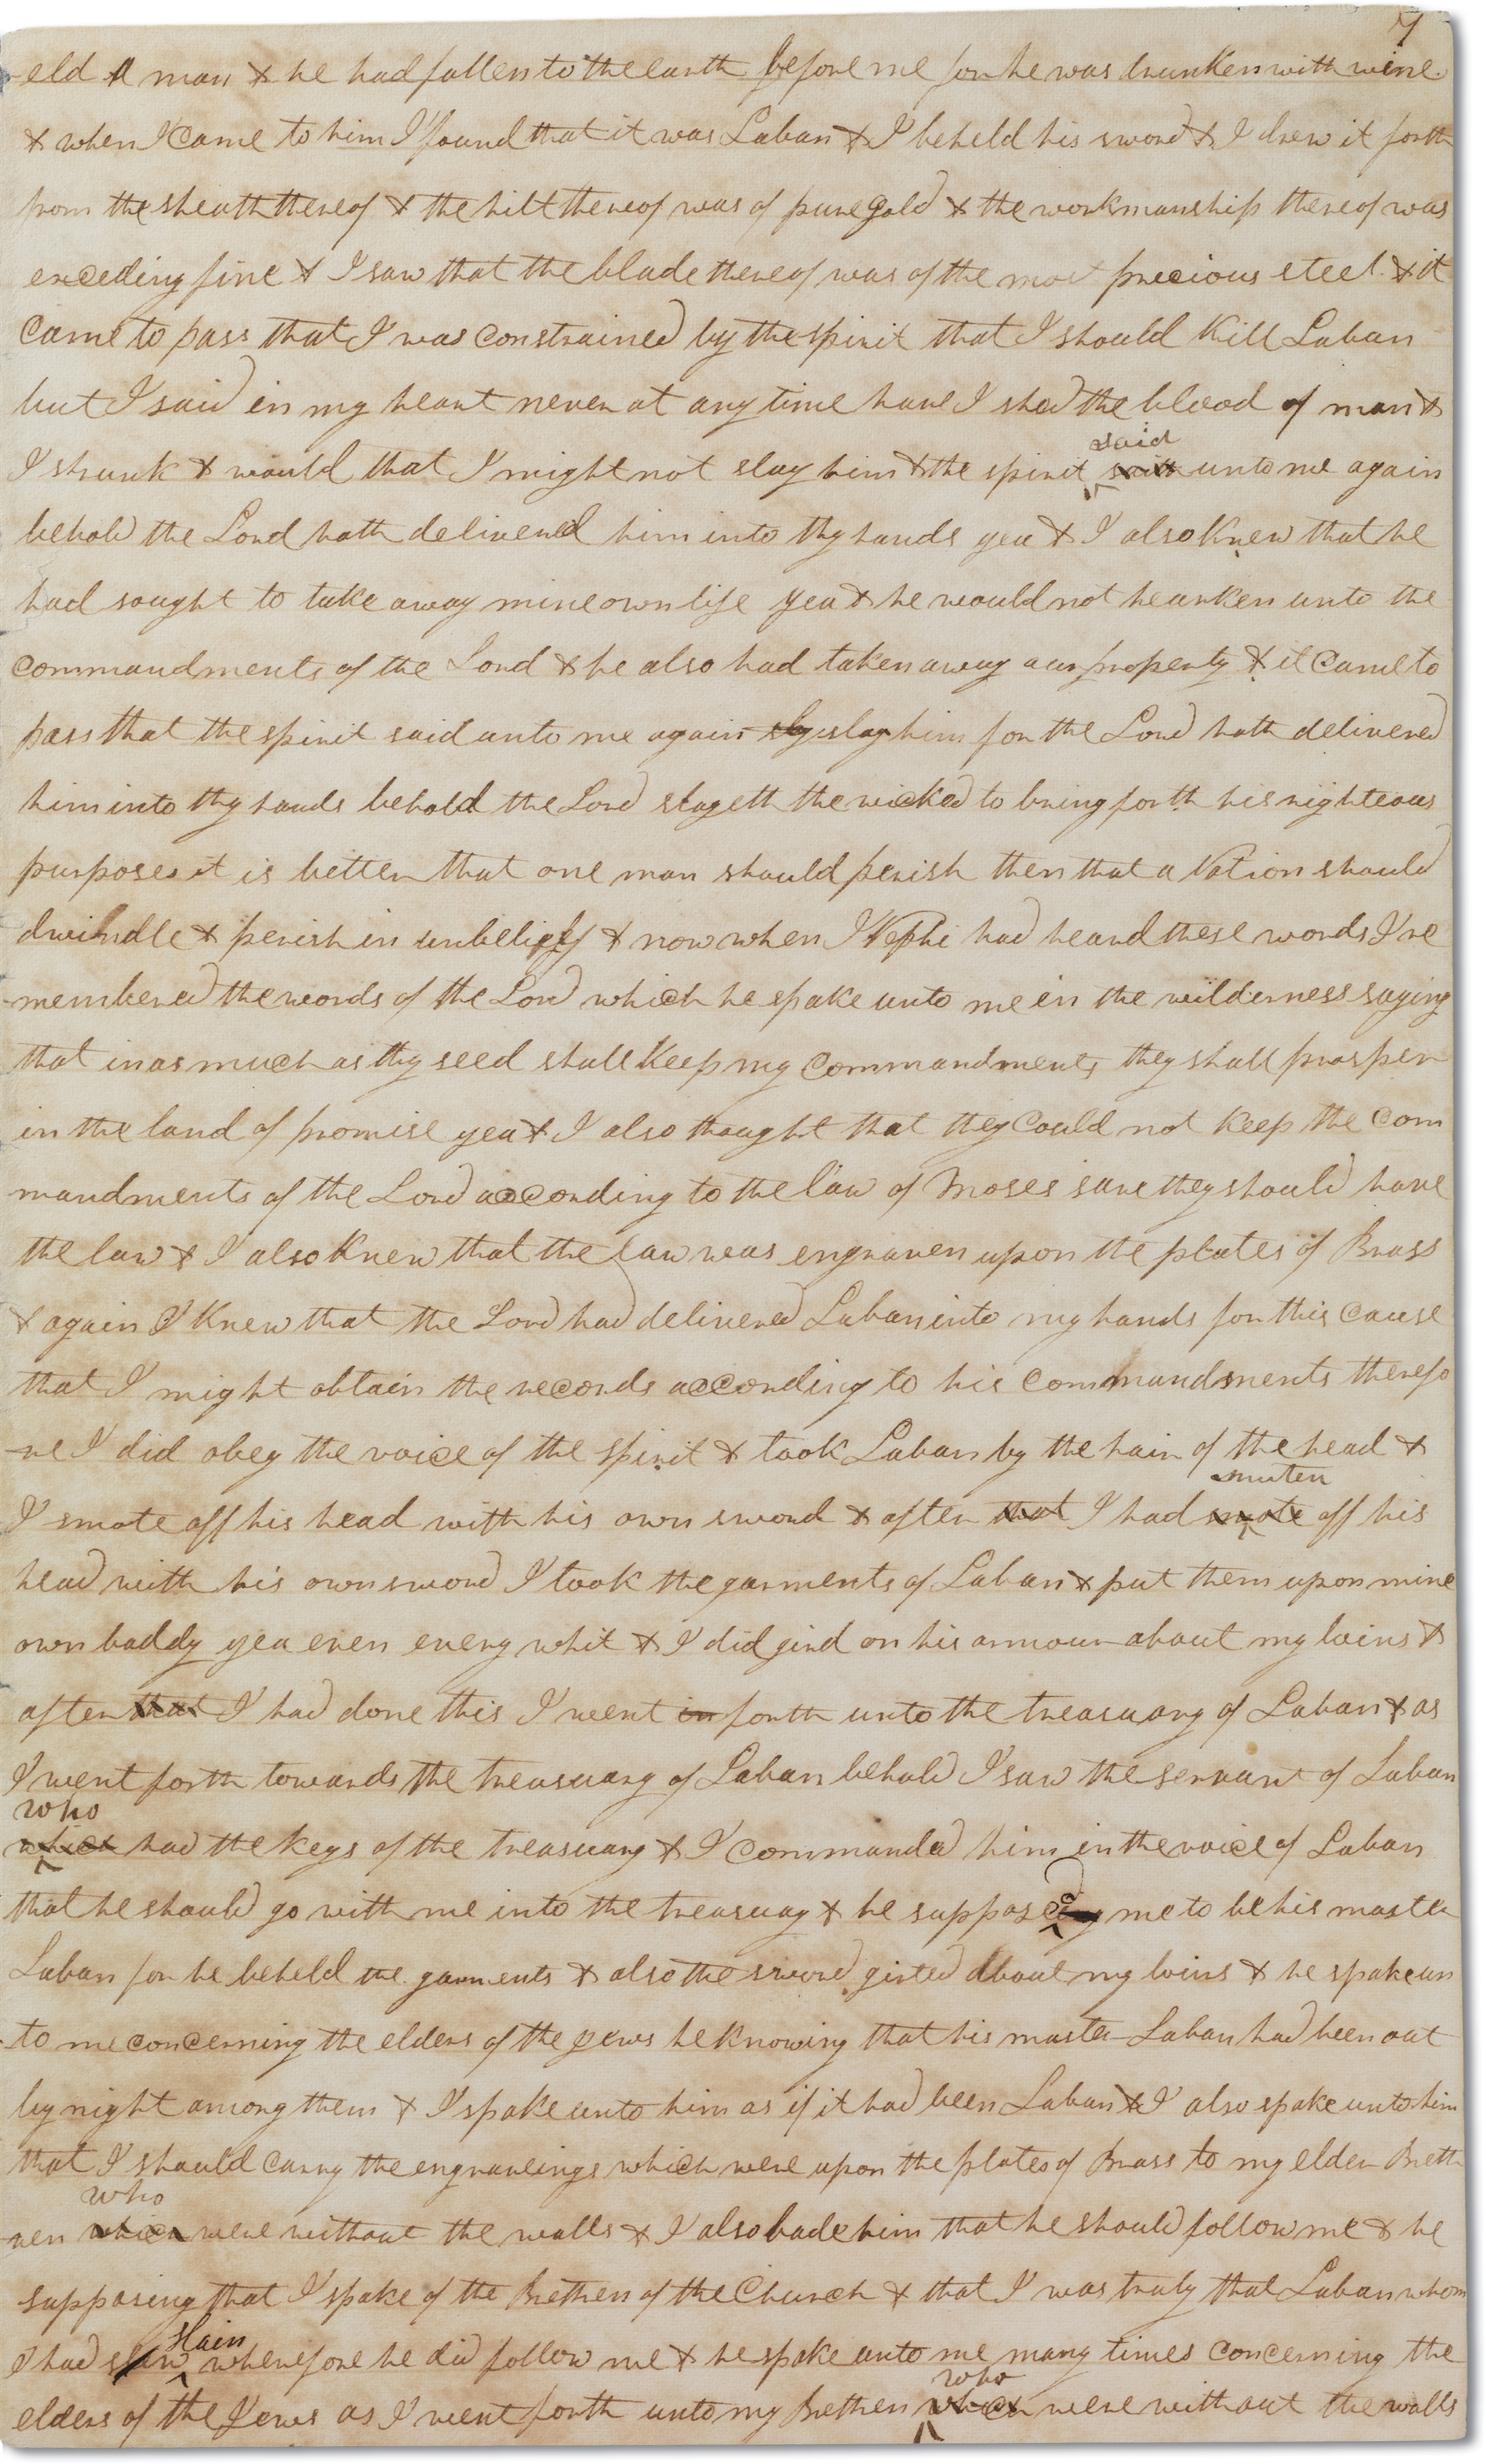 7
-eld A man & he had fallen to the earth before me for he was drunken with wine
& when I came to him I found that it was Laban & I beheld his sword & I drew it forth
from the sheath thereof & the hilt thereof was of pure gold & the workmanship thereof was
exceding fine & I saw that the blade thereof was of the most precious steel & it
came to pass that I was constrained by the spirit that I should kill Laban
but I said in my heart never at any time have I shed the blood of man &
said
I shrunk & would that I might not slay him & the spirit saith unto me again
behold the Lord hath delivered him into thy hands yea & I also knew that he
had sought to take away mine own life yea & he would not hearken unto the
commandments of the Lord & he also had taken away our property & it came to
pass that the spirit said unto me again sly slay him for the Lord hath delivered
him into thy hands behold the Lord slayeth the wicked to bring forth his righteous
purposes it is better that one man should perish then that a Nation should
dwindle & perish in unbelief & now when I Nephi had heard these words I re
-membered the words of the Lord which he spake unto me in the wilderness saying
that inasmuch as thy seed shall keep my commandments they shall prosper
in the land of promise yea & I also thought that they could not keep the com
mandments of the Lord according to the law of Moses save they should have
the law & I also knew that the law was engraven upon the plates of Brass
& again I knew that the Lord had delivered Laban into my hands for this cause
that I might obtain the records according to his commandments therefo
-re I did obey the voice of the spirit & took Laban by the hair of the head &
smiten
I smote off his head with his own sword & after that I had smote off his
head with his own sword I took the garments of Laban & put them upon mine
own boddy yea even every whit & I did gird on his armour about my loins &
after that I had done this I went in forth unto the treasuary of Laban & as
I went forth towards the treasuary of Laban behold I saw the servant of Laban
who
which had the keys of the treasuary & I commanded him in the voice of Laban
that he should go with me into the treasuay & he supposed me to be his master
Laban for he beheld the garments & also the sword girted about my loins & he spake un
-to me concerning the elders of the jews he knowing that his master Laban had been out
by night among them & I spake unto him as if it had been Laban & I also spake unto him
that I should carry the engraveings which were upon the plates of Brass to my elder Breth
who
ren which were without the walls & I also bade him that he should follow me & he
supposing that I spake of the Brethren of the Church & that I was truly that Laban whom
slain
I had slew wherefore he did follow me & he spake unto me many times concerning the
who
elders of the Jews as I went forth unto my Brethren which were without the walls